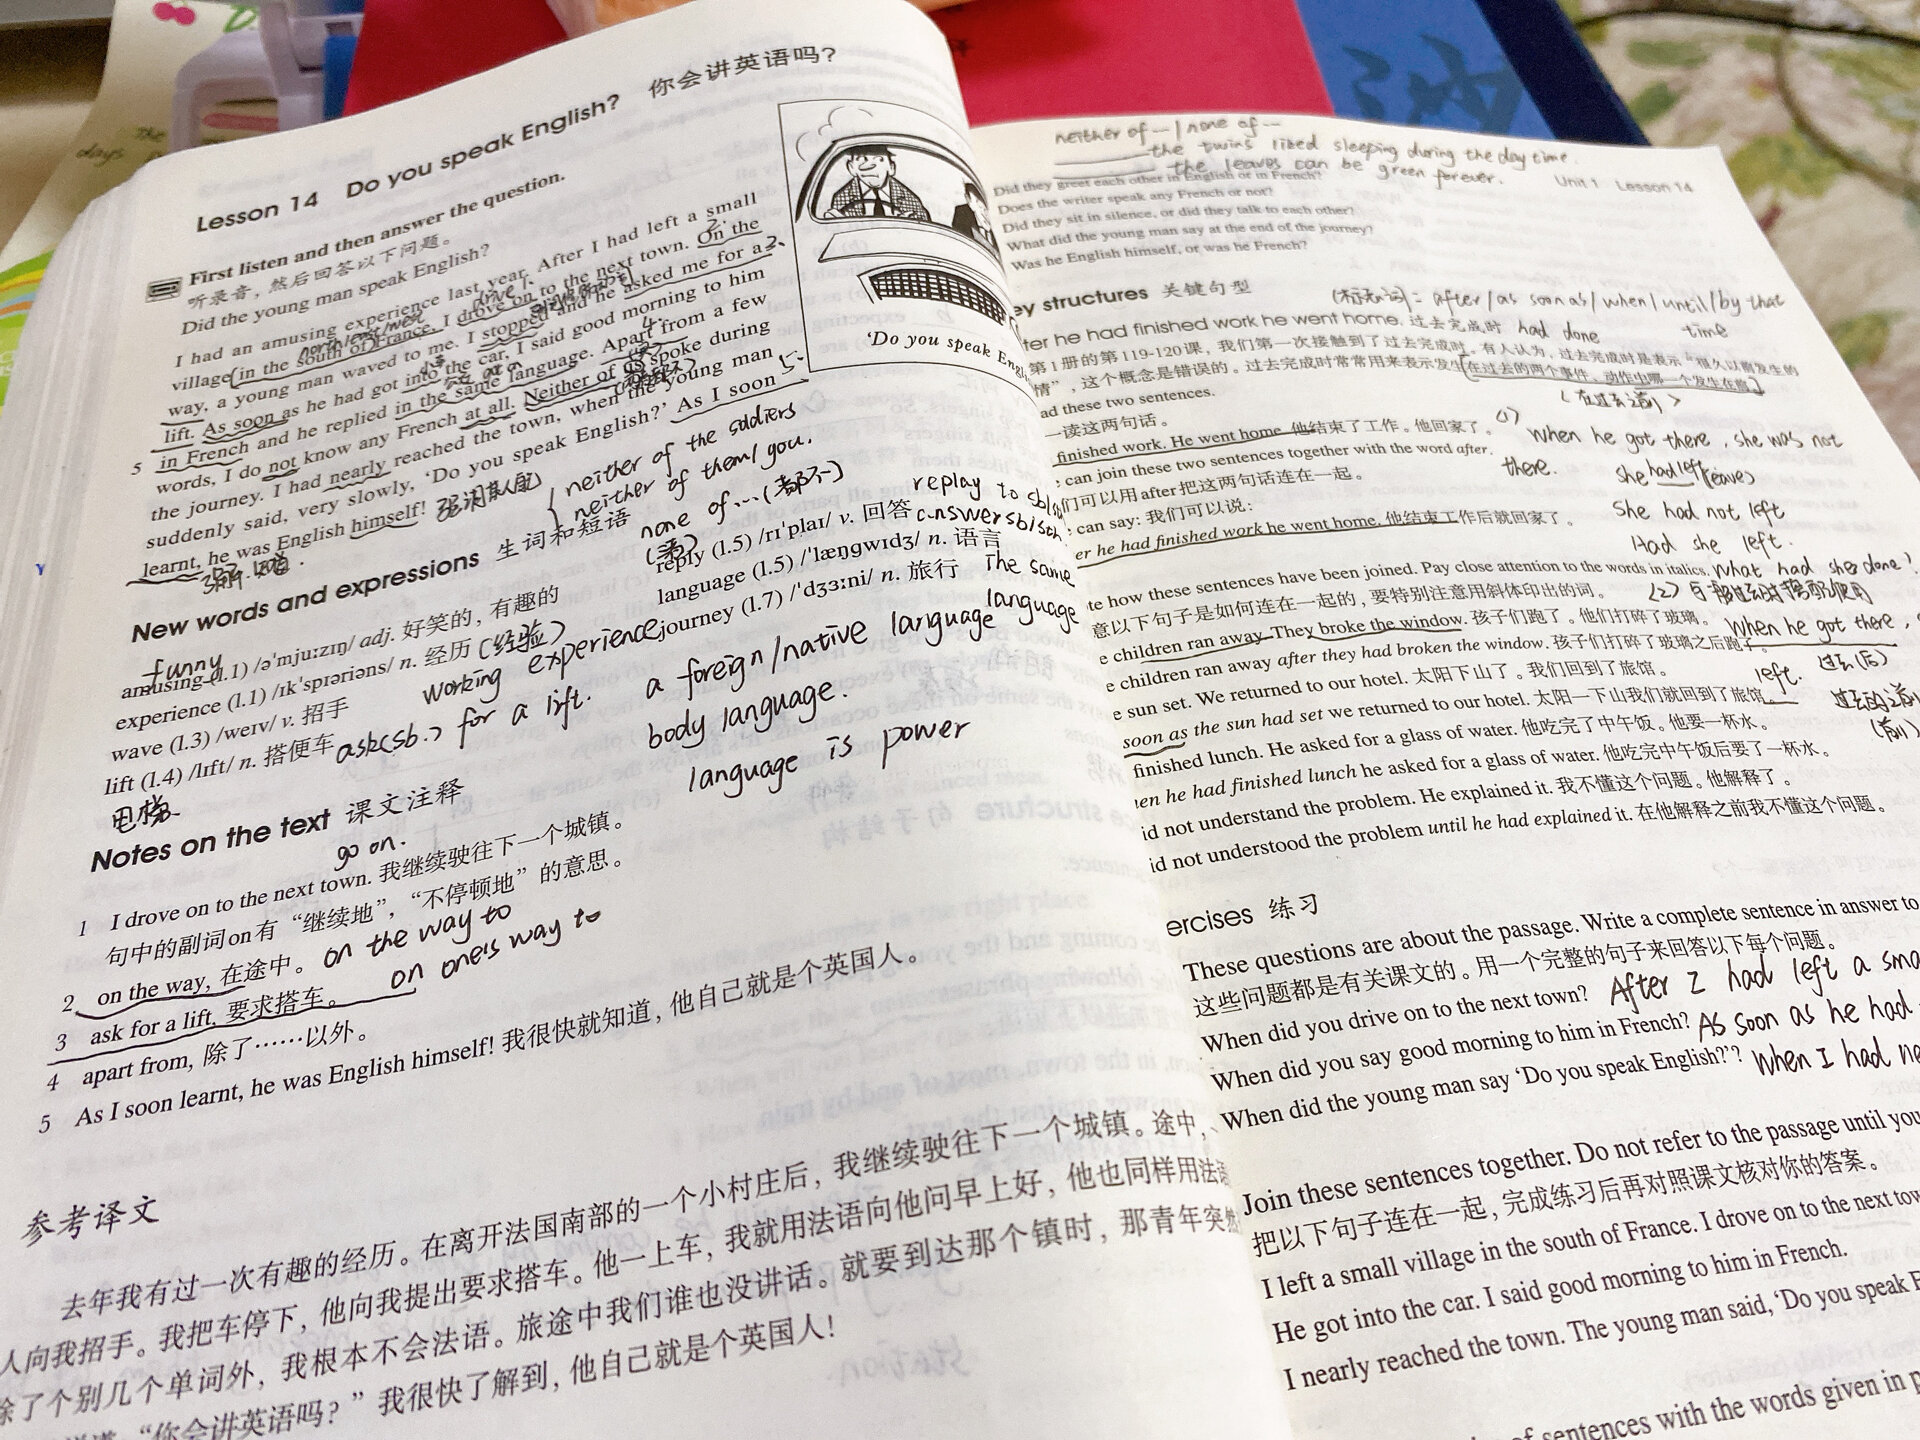 Lesson 14 Do you speak English? 你会讲英语吗?
First listen and then answer the question.
听录音，然后回答以下问题。
Did the young man speak English?
I had an amusing experience last year. After I had left a small
village in the south of France, I drove on to the next town. On the
way, a young man waved to me. I stopped and he asked me for a
lift. As soon as he had got into the car, I said good morning to him
5 in French and he replied in the same language. Apart from a few
words, I do not know any French at all. Neither of us spoke during
the journey. I had nearly reached the town, when the young man
suddenly said, very slowly, ‘Do you speak English?’ As I soon
learnt, he was English himself!
north/east/west
neither of the soldiers
neither of them/you.
none of…(都不)
‘Do you speak Engl
New words and expressions 生词和短语
funny
amusing (l.1) /əˈmjuːzɪŋ/ adj. 好笑的，有趣的
experience (l.1) /ɪkˈspɪəriəns/ n. 经历 (经验)
working experience
wave (l.3) /weɪv/ v. 招手
lift (l.4) /lɪft/ n. 搭便车 ask(sb.) for a lift.
电梯
reply (l.5) /rɪˈplaɪ/ v. 回答
replay to sb
answer sb/sth
language (l.5) /ˈlæŋɡwɪdʒ/ n. 语言
the same language
journey (l.7) /ˈdʒɜːni/ n. 旅行
a foreign/native language
body language.
language is power
Notes on the text 课文注释
go on.
1 I drove on to the next town. 我继续驶往下一个城镇。
句中的副词on有“继续地”，“不停顿地”的意思。
2 on the way, 在途中。 on the way to
on one's way to
3 ask for a lift, 要求搭车。
4 apart from, 除了……以外。
5 As I soon learnt, he was English himself! 我很快就知道，他自己就是个英国人。
参考译文
去年我有过一次有趣的经历。在离开法国南部的一个小村庄后，我继续驶往下一个城镇。途中，
人向我招手。我把车停下，他向我提出要求搭车。他一上车，我就用法语向他问早上好，他也同样用法语
除了个别几个单词外，我根本不会法语。旅途中我们谁也没讲话。就要到达那个镇时，那青年突然
“你会讲英语吗？”我很快了解到，他自己就是个英国人！
neither of … / none of …
the twins liked sleeping during the day time.
the leaves can be green forever.
Unit 1 Lesson 14
Did they greet each other in English or in French?
Does the writer speak any French or not?
Did they sit in silence, or did they talk to each other?
What did the young man say at the end of the journey?
Was he English himself, or was he French?
ey structures 关键句型
(标志词): after/as soon as/when/until/by that time
ter he had finished work he went home. 过去完成时 had done
第1册的第119-120课，我们第一次接触到了过去完成时。有人认为，过去完成时是表示“很久以前发生的
情”，这个概念是错误的。过去完成时常常用来表示发生在过去的两个事件、动作中哪一个发生在前
ad these two sentences.
一读这两句话。
finished work. He went home. 他结束了工作。他回家了。
can join these two sentences together with the word after.
们可以用after把这两句话连在一起。
can say: 我们可以说：
er he had finished work he went home. 他结束工作后就回家了。
(1) When he got there, she was not there.
she had left (leave)
She had not left
Had she left.
What had she done?
te how these sentences have been joined. Pay close attention to the words in italics.
意以下句子是如何连在一起的，要特别注意用斜体印出的词。
When he got there,
left.
e children ran away. They broke the window. 孩子们跑了。他们打碎了玻璃。
e children ran away after they had broken the window. 孩子们打碎了玻璃之后跑了。
e sun set. We returned to our hotel. 太阳下山了。我们回到了旅馆。
soon as the sun had set we returned to our hotel. 太阳一下山我们就回到了旅馆。
finished lunch. He asked for a glass of water. 他吃完了中午饭。他要一杯水。
en he had finished lunch he asked for a glass of water. 他吃完中午饭后要了一杯水。
id not understand the problem. He explained it. 我不懂这个问题。他解释了。
id not understood the problem until he had explained it. 在他解释之前我不懂这个问题。
ercises 练习
These questions are about the passage. Write a complete sentence in answer to
这些问题都是有关课文的。用一个完整的句子来回答以下每个问题。
When did you drive on to the next town? After I had left a sma
When did you say good morning to him in French? As soon as he had
When did the young man say ‘Do you speak English?’? When I had ne
Join these sentences together. Do not refer to the passage until you
把以下句子连在一起，完成练习后再对照课文核对你的答案。
I left a small village in the south of France. I drove on to the next tow
He got into the car. I said good morning to him in French.
I nearly reached the town. The young man said, ‘Do you speak E
of sentences with the words given in p